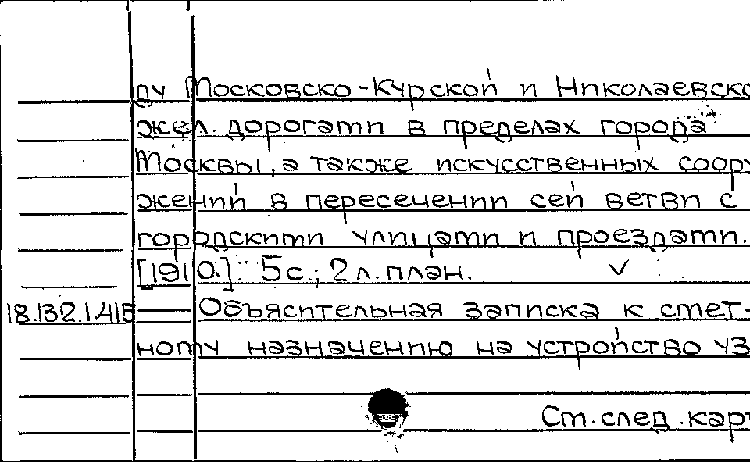 ду Московско-Курской и Николаевско
жел. дорогами в пределах города
Москвы, а также искусственных соору
жений в пересечении сей ветви с
городскими улицами и проездами.
[1910.]. 5с.; 2 л. план. ✓
18.132.1.415 — Объяснительная записка к смет-
ному назначению на устройство уз
См. след. кар